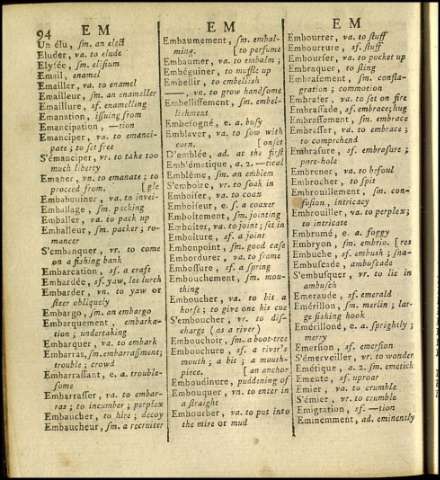 94 E M
E M
E M
Un élu, ſm. an elect
Eluder, va. to elude
Elyſée, ſm. eliſium
Email, enamel
Emailler, va. to enamel
Emailleur, ſm. an enameller
Emaillure, ſf. enamelling
Emanation, iſſuing from
Emancipation, —tion
Emanciper, va. to emanci-
pate; to ſet free
S'émanciper, vr. to take too
much liberty
Emaner, vn. to emanate; to
proceed from. [gle
Embabouiner, va. to invei-
Emballage, ſm. packing
Emballer, va. to pack up
Emballeur, ſm. packer; ro-
mancer
S'embanquer, vr. to come
on a fiſhing bank
Embarcation, ſf. a craft
Embardée, ſf. yaw, lee lurch
Embarder, vn. to yaw or
ſteer obliquely
Embargo, ſm. an embargo
Embarquement, embarka-
tion; undertaking
Embarquer, va. to embark
Embarras, ſm. embarraſſment;
trouble; crowd
Embarraſſant, e. a. trouble-
ſome
Embarraſſer, va. to embar-
raſs; to incumber; perplex
Embaucher, to hire; decoy
Embaucheur, ſm. a recruiter
Embaumement, ſm. embal-
ming. [to perfume
Embaumer, va. to embalm;
Embéguiner, to muffle up
Embellir, to embelliſh
——, va. to grow handſome
Embelliſſement, ſm. embel-
liſhment
Embeſogné, e. a. buſy
Emblaver, va. to ſow with
corn. [onſet
D'emblée, ad. at the firſt
Emblématique, a. 2. —tical
Emblême, ſm. an emblem
S'emboire, vr. to ſoak in
Emboiſer, va. to coax
Emboiſeur, e. ſ. a coaxer
Emboîtement, ſm. jointing
Emboîter, va. to joint; ſet in
Emboîture, ſf. a joint
Embonpoint, ſm. good caſe
Embordurer, va. to frame
Emboſſure, ſf. a ſpring
Embouchement, ſm. mou-
thing
Emboucher, va. to bit a
horſe; to give one his cue
S'emboucher, vr. to diſ-
charge (as a river)
Embouchoir, ſm. a boot-tree
Embouchure, ſf. a river's
mouth; a bit; a mouth-
piece. [an anchor
Emboudinure, puddening of
Embouquer, vn. to enter in
a ſtraight
Embourber, va. to put into
the mire or mud
Embourrer, va. to ſtuff
Embourrure, ſf. ſtuff
Embourſer, va. to pocket up
Embraquer, to ſling
Embraſement, ſm. confla-
gration; commotion
Embraſer, va. to ſet on fire
Embraſſade, ſf. embrace; hug
Embraſſement, ſm. embrace
Embraſſer, va. to embrace;
to comprehend
Embraſure, ſf. embraſure;
port-hole
Embrener, va. to befoul
Embrocher, to ſpit
Embrouillement, ſm. con-
fuſion, intricacy
Embrouiller, va. to perplex;
to intricate
Embrumé, e. a. foggy
Embryon, ſm. embrio. [res
Embuche, ſf. ambuſh; ſna-
Embuſcade, ambuſcade
S'embuſquer, vr. to lie in
ambuſh
Emeraude, ſf. emerald
Emérillon, ſm. merlin; lar-
ge fiſhing hook
Emérilloné, e. a. ſprightly;
merry
Emerſion, ſf. emerſion
S'émerveiller, vr. to wonder
Emétique, a. 2. ſm. emetick
Emeute, ſf. uproar
Emier, va. to crumble
S'émier, vr. to crumble
Emigration, ſf. —tion
Eminemment, ad. eminently